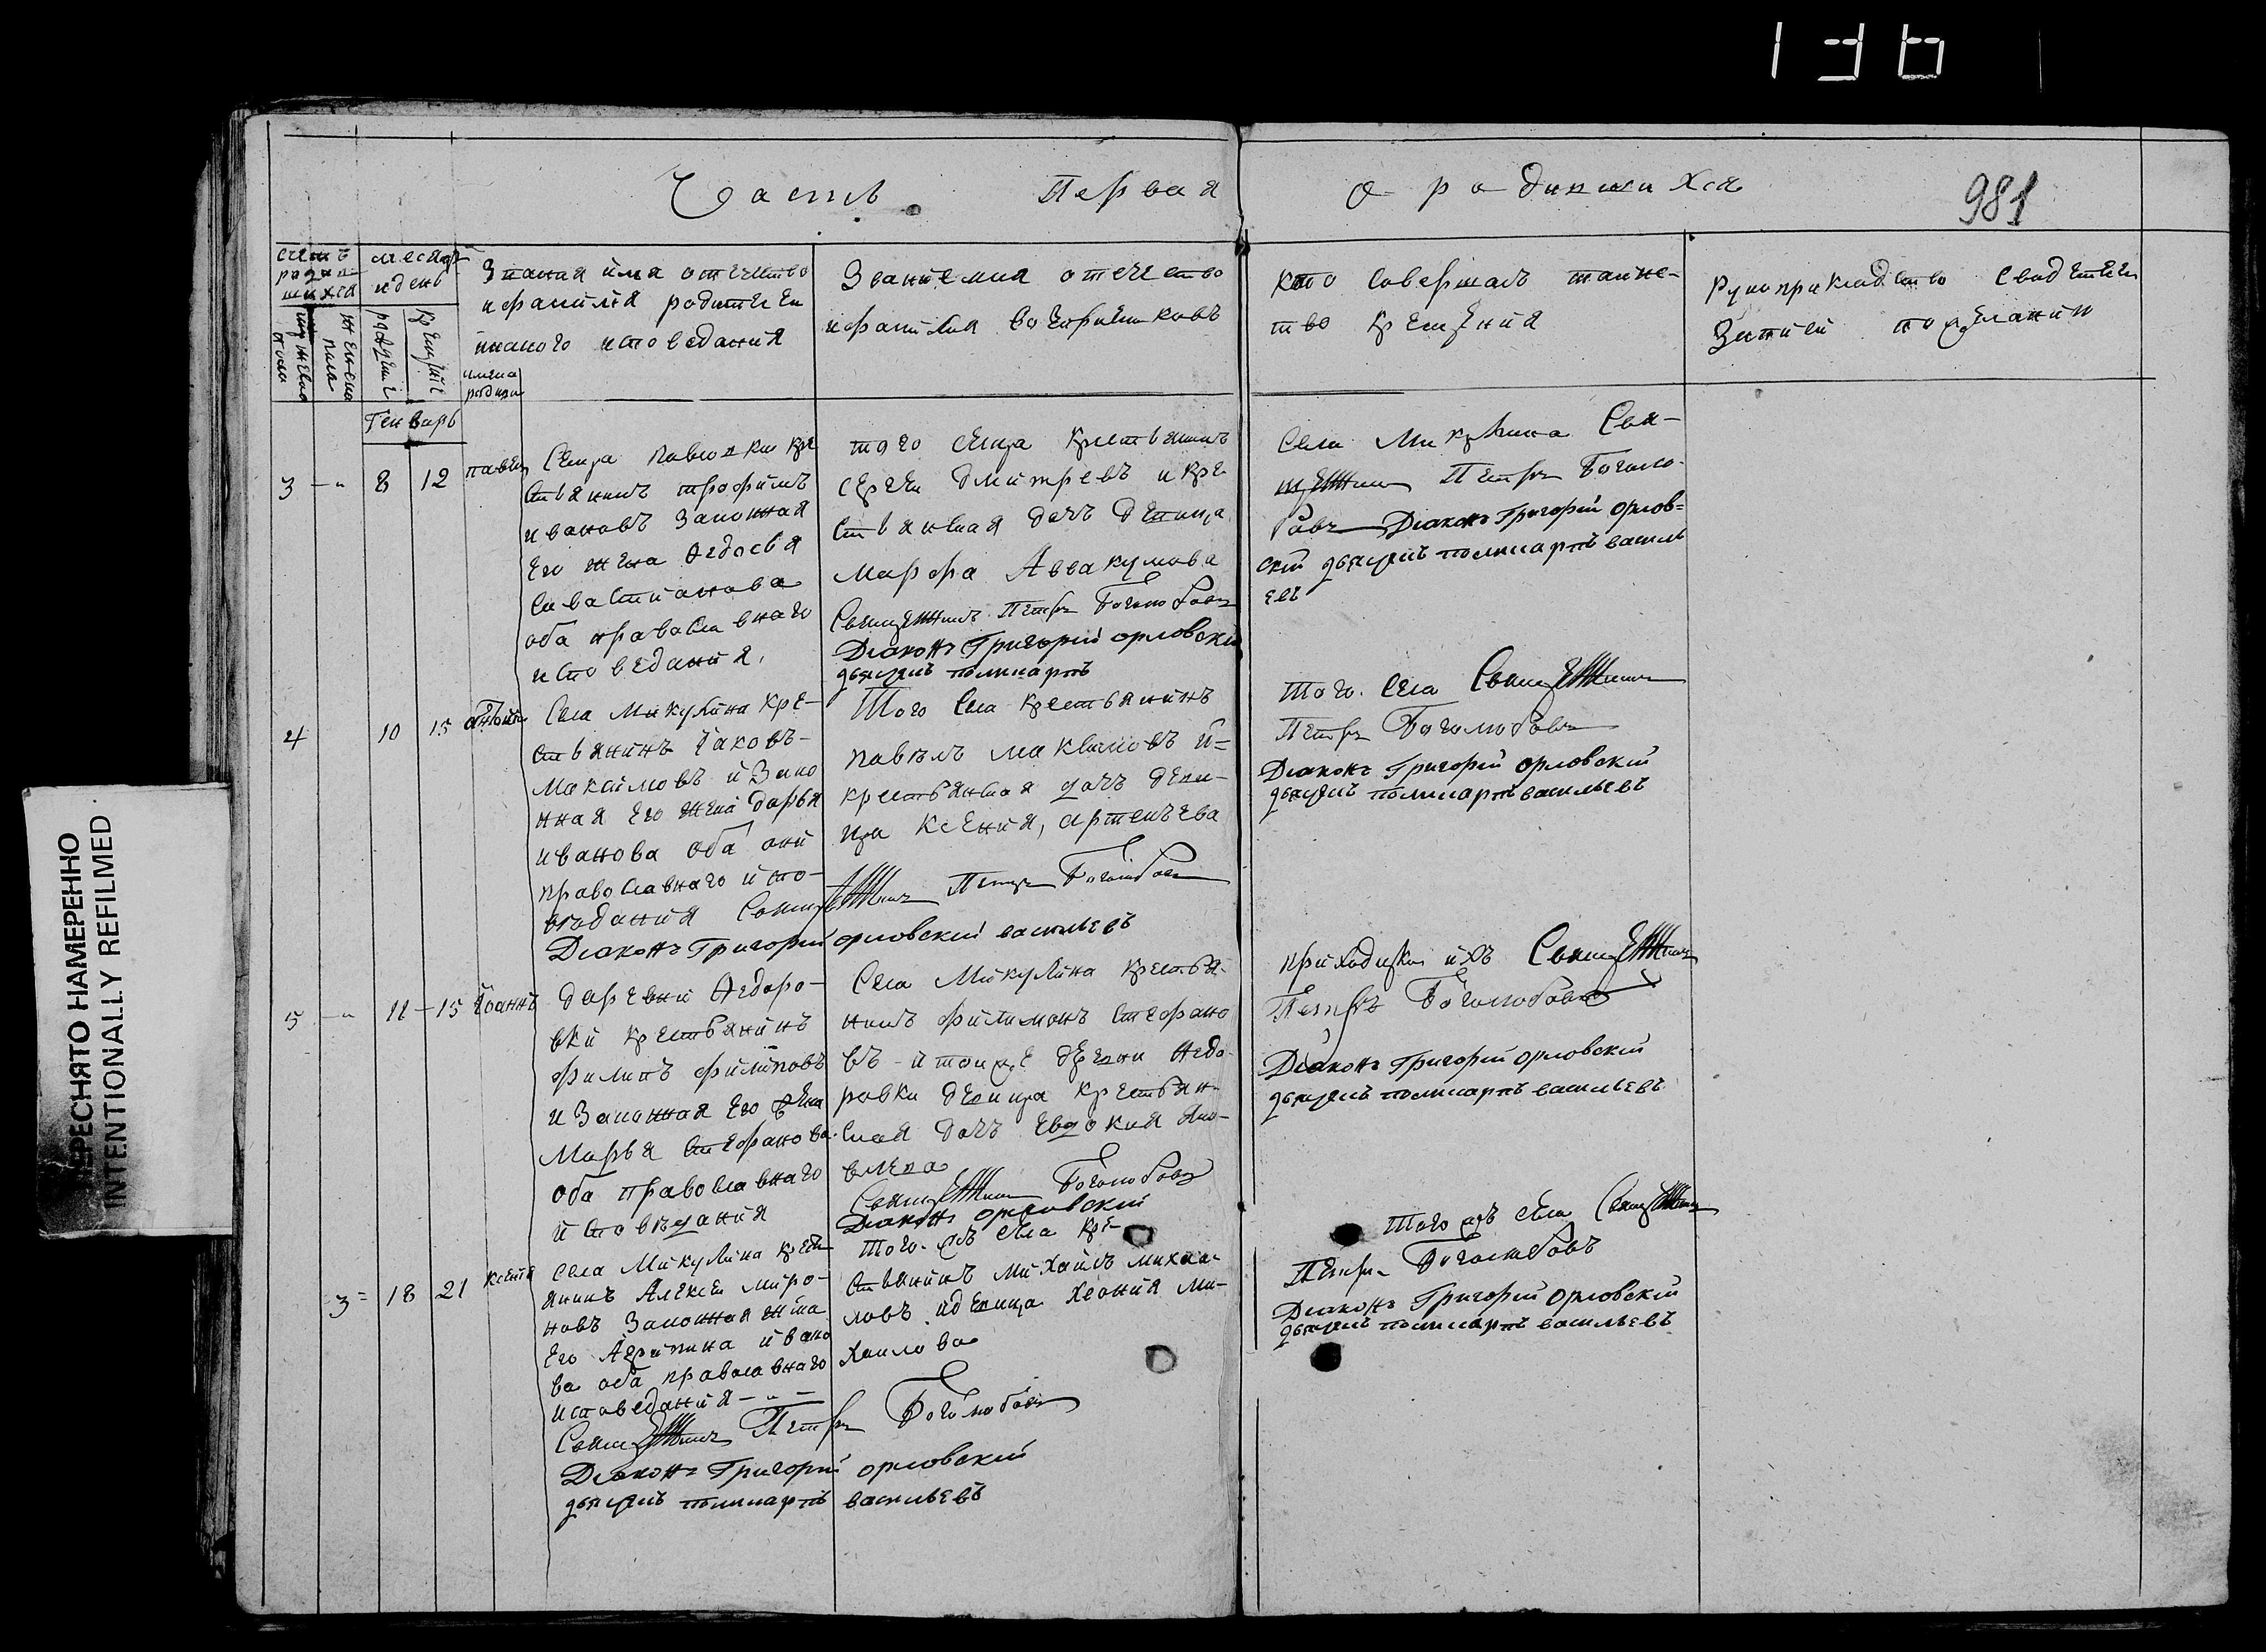 136
Часть Первая о родившихся
981
счетъ родившихся
мужеска пола
женска пола
месяцъ и день
рождение
крещение
имена родивш
Звания имя отечество
и фамилия родителей
и какого исповедания
Звание имя отечество
и фамилия восприемниковъ
кто совершалъ таинс-
тво крещения
рукоприкладство свидетелей
записи по желанию
Генварь
3 - 8 12 павелъ
Сельца кре
стьянинъ трофимъ
ивановъ Законная
Его жена Федосья
Савастианова
оба православнаго
исповедания,
того сельца крестьянинъ
сергеи дмитревъ и кре
стьянская дочь девица
марфа Аввакумова
Священникъ Петръ Боголюбовъ
Диаконъ Григорий орловский
дьячекъ поликарпъ
Села Микулина Свя-
щенникъ Петръ Боголю-
бовъ Диаконъ Григорий орлов=
ский дьячекъ поликарпъ василь
евъ
4 10 15
Села Микулина кре-
стьянинъ Iаковъ-
Максимовъ и Зако
нная Его жена дарья
иванова оба они
православнаго испо-
веданиа Священникъ Петръ Боголюбовъ
Диаконъ Григорий орловский васильевъ
Того Села крестьянинъ
павелъ максимовъ и=
крестьянская дочь деви-
ца Ксения, артемьева
того. Села Священникъ
Петръ Боголюбовъ
Диаконъ Григорий орловский
дьячекъ поликарпъ васильевъ
5 - 11 - 15 Iоаннъ
деревни Федоро-
вки крестьянинъ
филипъ филиповъ
и Законная Его жена
Марья стефанова
оба православнаго
исповедания
Села Микулина крестья-
нинъ филимонъ стефано
въ - и тоиже деревни Федо-
ровки девица крестьян-
ская дочь Евдокия Яко-
влева
Священникъ Боголюбовъ
Диаконъ орловский
приходски ихъ Священникъ
Петръ Боголюбовъ
Диаконъ Григорий орловский
дьячекъ поликарпъ васильевъ
3= 18 21 Ксения
Села Микулина крестья
янинъ Алексеи миро-
новъ Законная жена
Его Агрипина ивано
ва оба православнаго
исповедания - " -
Священникъ Петръ Боголюбовъ
Диаконъ Григорий орловский
дьячекъ поликарпъ васильевъ
того. жъ села кре-
стьянинъ Михаилъ михаи-
ловъ и девица Ми-
хаилова
того жъ села Священникъ
Петръ Боголюбовъ
Диаконъ Григорий орловский
дьячекъ поликарпъ васильевъ
ПЕРЕСНЯТО НАМЕРЕННО
INTENTIONALLY REFILMED